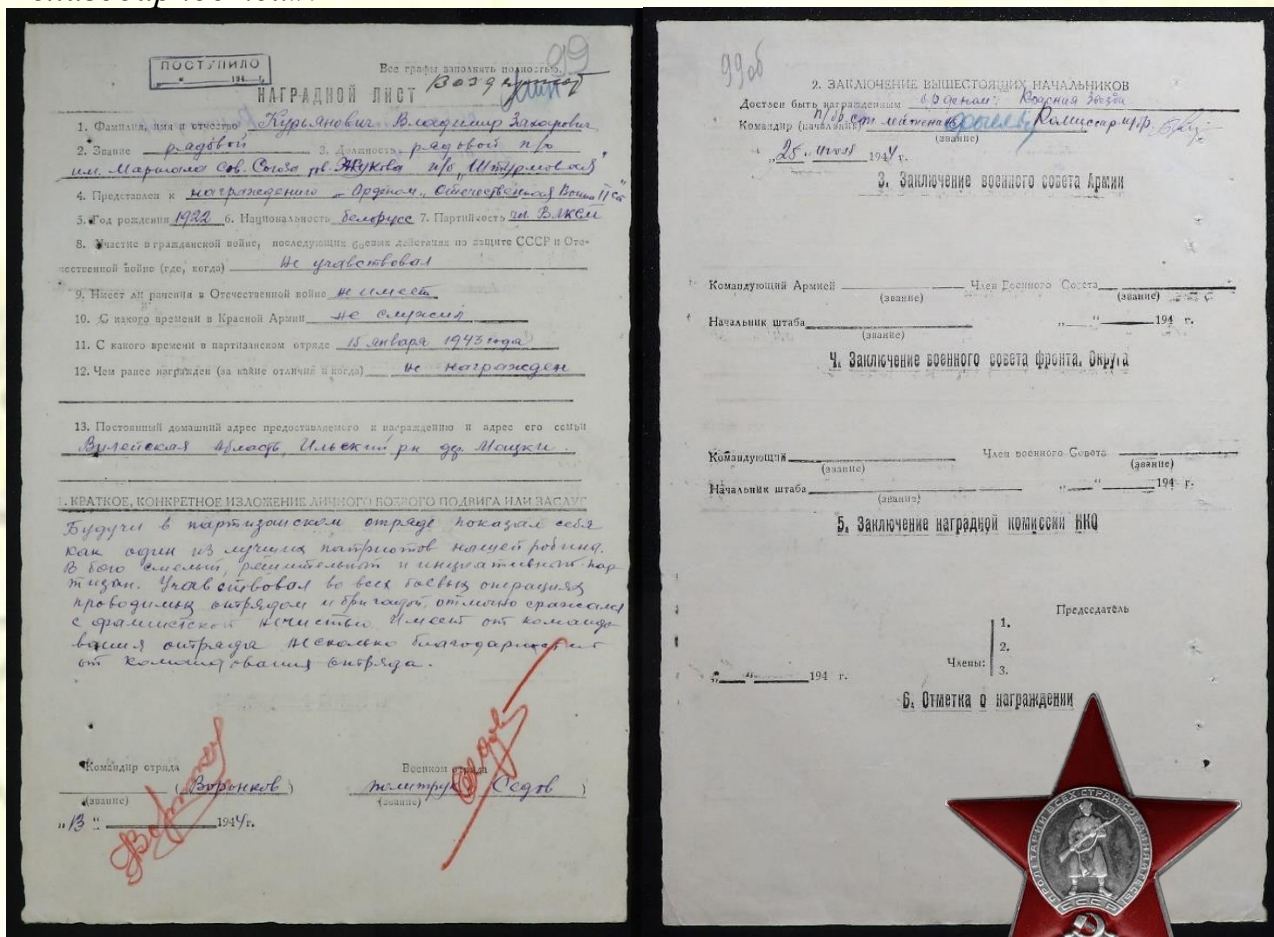 99
ПОСТУПИЛО
194 г.
Все графы заполнять полностью.
НАГРАДНОЙ ЛИСТ
1. Фамилия, имя и отчество Курьянович Владимир Захарович
2. Звание рядовой 3. Должность рядовой п/о
им. Маршала Сов. Союза тв. Жукова п/б "Штурмовая"
4. Представлен к награждению Орденом "Отечественная Война II ст"
5. Год рождения 1922 6. Национальность белорусс 7. Партийность чл. ВЛКСМ
8. Участие в гражданской войне, последующих боевых действиях по защите СССР и Оте-
чественной войне (где, когда) Не учавствовал
9. Имеет ли ранения в Отечественной войне не имеет
10. С какого времени в Красной Армии не служил
11. С какого времени в партизанском отряде 15 января 1943 года
12. Чем ранее награжден (за какие отличия и когда) не награжден
13. Постоянный домашний адрес предоставляемого к награждению и адрес его семьи
Вилейская область, Ильский р-н дер. Моцки.
1. КРАТКОЕ, КОНКРЕТНОЕ ИЗЛОЖЕНИЕ ЛИЧНОГО БОЕВОГО ПОДВИГА ИЛИ ЗАСЛУГ
Будучи в партизанском отряде показал себя
как один из лучших патриотов нашей родины.
В бою смелый, решительный и инициативный пар-
тизан. Учавствовал во всех боевых операциях
проводимых отрядом и бригадой, отлично сражался
с фашистской нечистью. Имеет от командо-
вания отряда несколько благодарностей
от командования отряда.
Командир отряда
(Воронков)
(звание)
"13" 1944 г.
Военком отряда
политрук Седов )
(звание)
99 об
2. ЗАКЛЮЧЕНИЕ ВЫШЕСТОЯЩИХ НАЧАЛЬНИКОВ
Достоен быть награжденным орденом: Красная Звезда
Командир (начальник) п/бр. ст. лейтенант Комиссар
(звание)
"25" 1944 г.
3. Заключение военного совета Армии
Командующий Армией Член Военного Совета
(звание) (звание)
Начальник штаба " " 194 г.
(звание)
4. Заключение военного совета фронта, Округа
Командующий Член военного Совета
(звание) (звание)
Начальник штаба " " 194 г.
(звание)
5. Заключение наградной комиссии НКО
Председатель
1.
2.
Члены:
3.
" " 194 г.
6. Отметка о награждении
ПРОЛЕТАРИИ ВСЕХ СТРАН СОЕДИНЯЙТЕСЬ
СССР